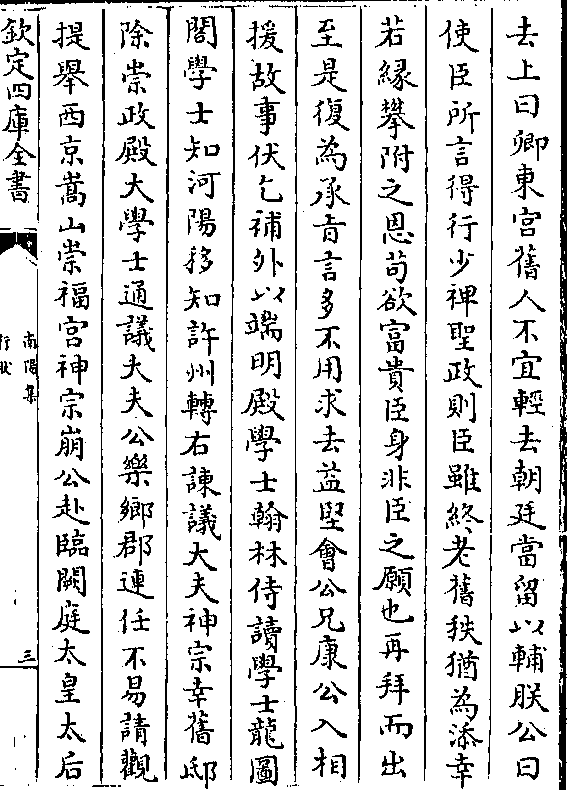 去上曰卿東宮舊人不宜輕去朝廷當留以輔朕公曰
使臣所言得行少裨聖政則臣雖終老舊秩猶為添幸
若縁攀附之恩苟欲富貴臣身非臣之願也再拜而出
至是復為承㫖言多不用求去益堅會公兄康公入相
援故事伏乞補外以端明殿學士翰林侍讀學士龍圖
閣學士知河陽移知許州轉右諫議大夫神宗幸舊邸
除崇政殿大學士通議大夫公樂鄉郡連任不易請觀
提舉西京嵩山崇福宮神宗崩公赴臨闕庭太皇太后
欽定四庫全書
南陽集
行狀
三